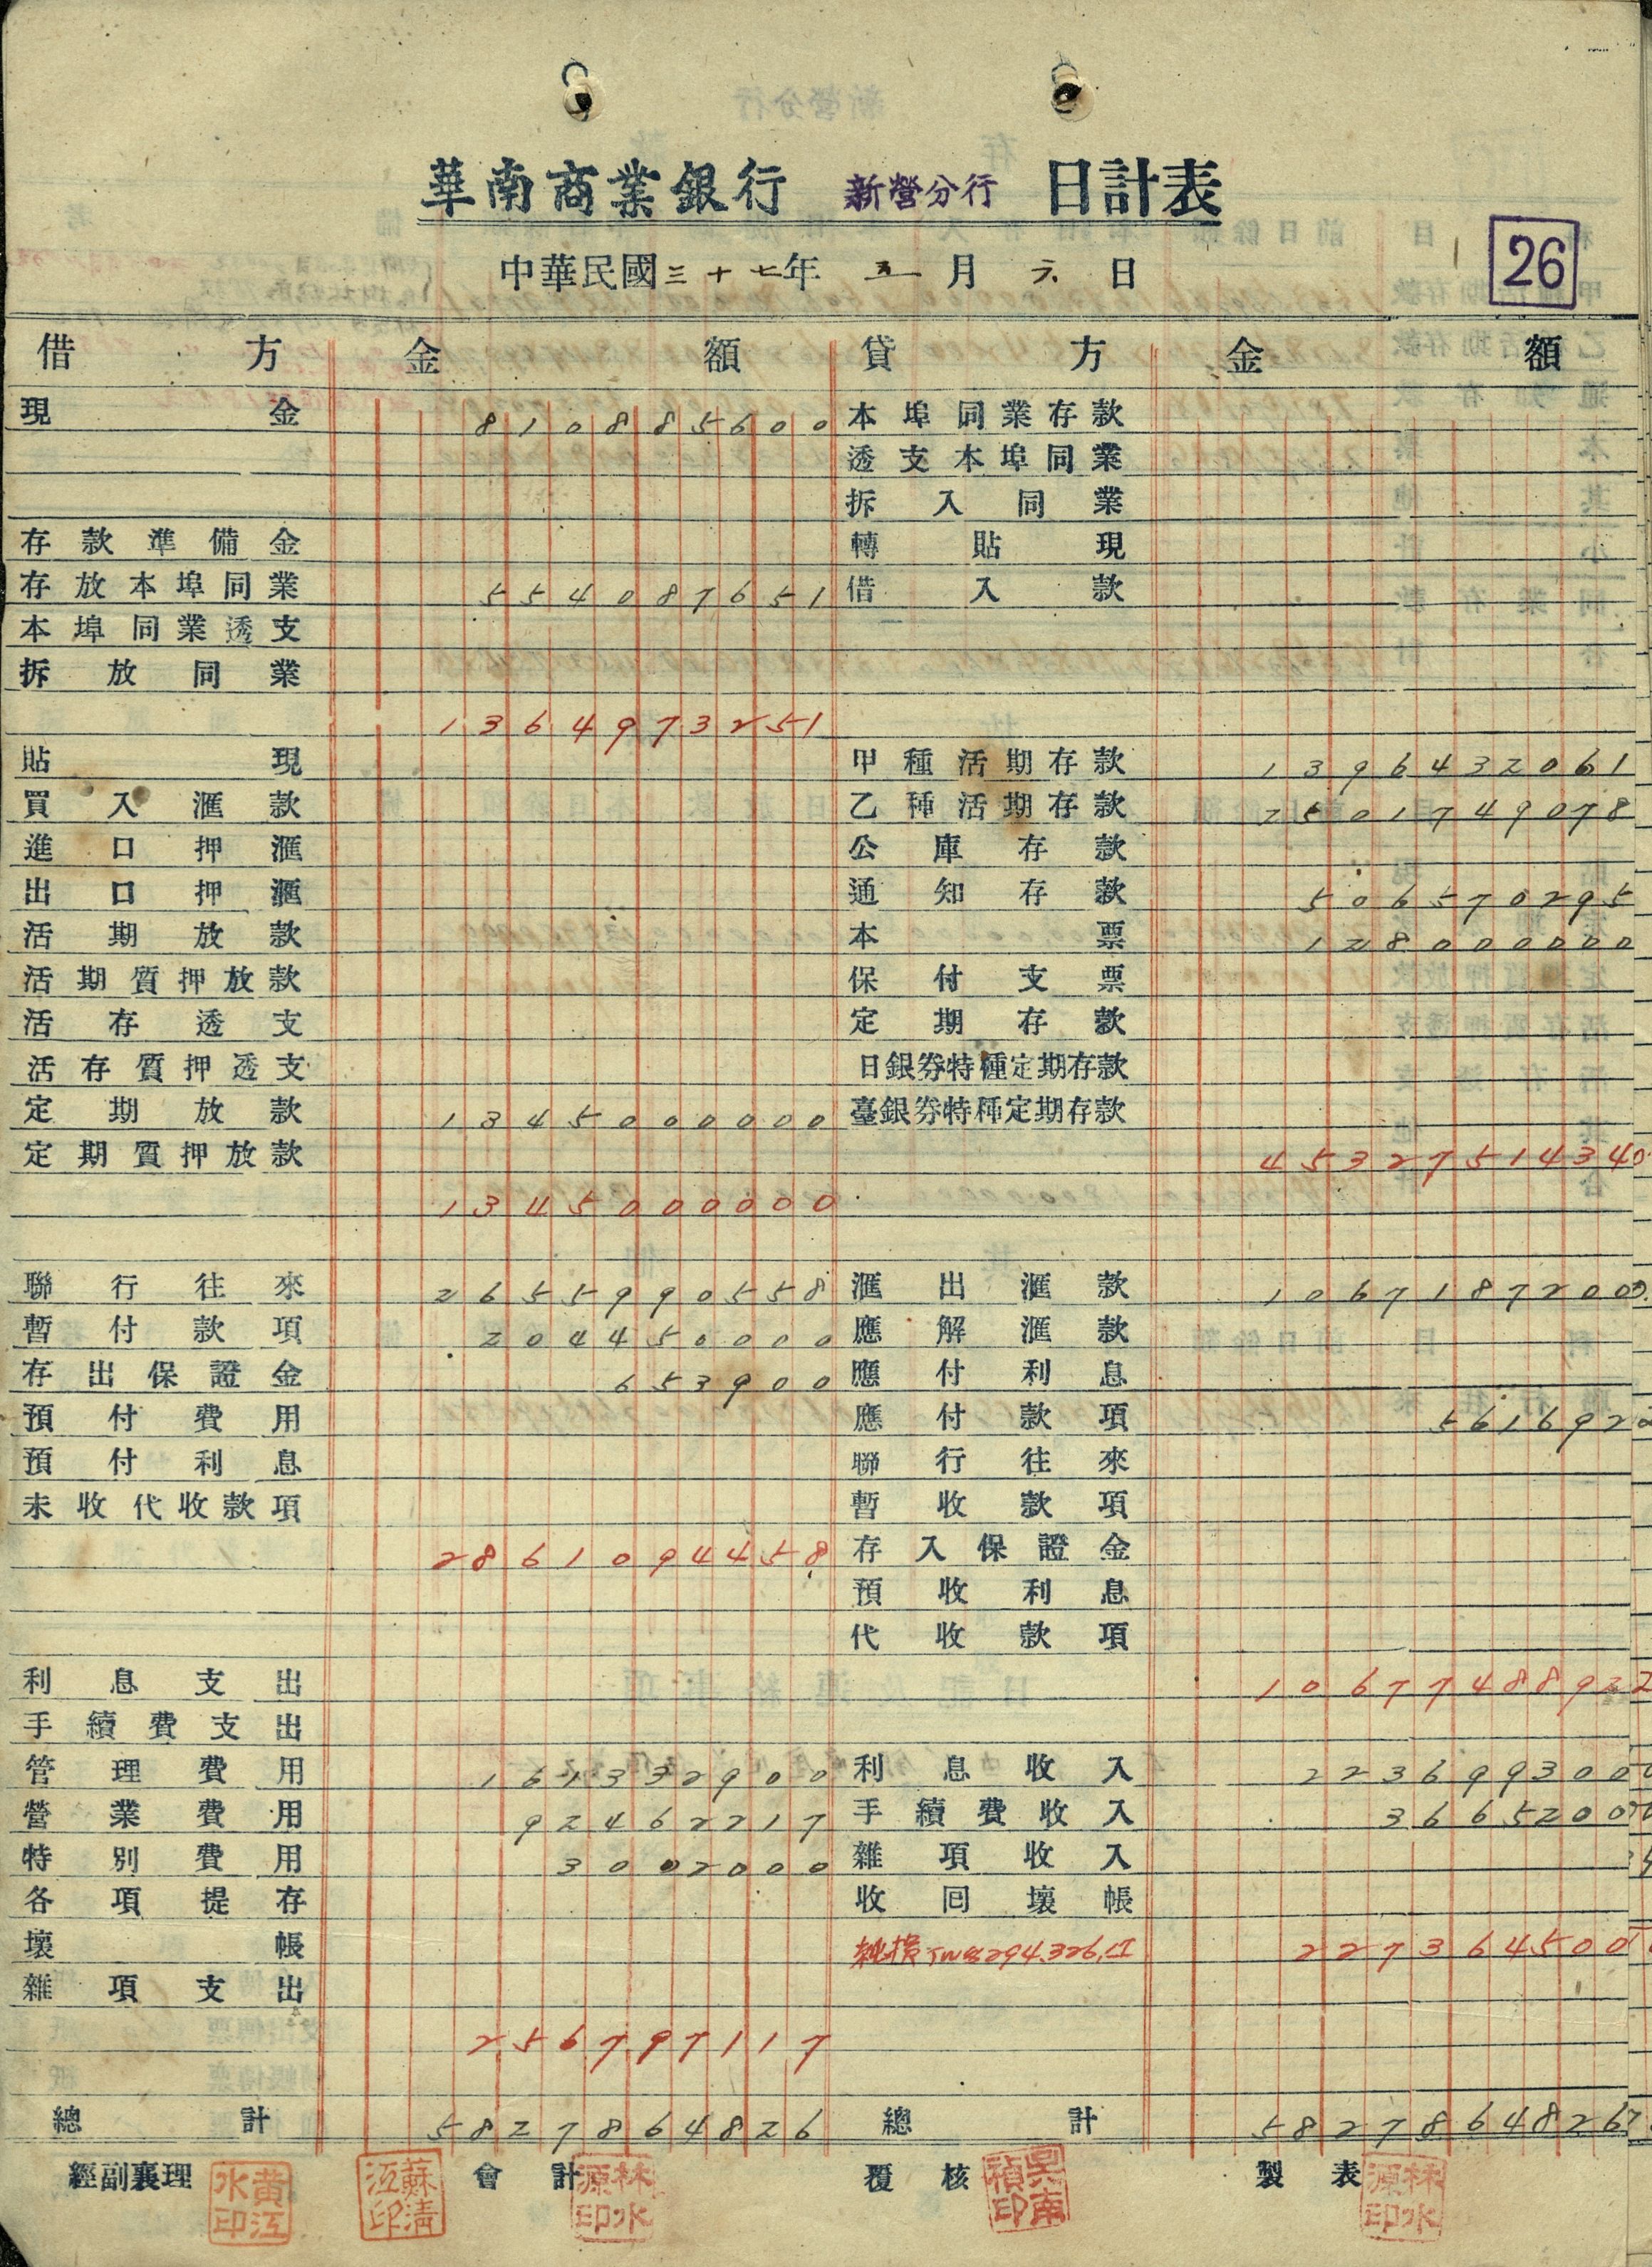 華南商業銀行 新營分行 日計表
26
中華民國三十七年 五月 六日
借方 金額 貸方 金額
現金 810885600 本埠同業存款
透支本埠同業
拆入同業
存款準備金 轉貼現
存放本埠同業 554087651 借入款
本埠同業透支
拆放同業
1364973251
貼現 甲種活期存款 1396432061
買入滙款 乙種活期存款 2501749078
進口押滙 公庫存款
出口押滙 通知存款 506570295
活期放款 本票 128000000
活期質押放款 保付支票
活存透支 定期存款
活存質押透支 日銀券特種定期存款
定期放款 1345000000 臺銀券特種定期存款
定期質押放款 45327514340
1345000000
聯行往來 2655990558 滙出滙款 1067187200
暫付款項 204450000 應解滙款
存出保證金 653900 應付利息
預付費用 應付款項 561692
預付利息 聯行往來
未收代收款項 暫收款項
2861094458 存入保證金
預收利息
代收款項
利息支出 1067748892
手續費支出
管理費用 161332900 利息收入 223699300
營業費用 92462217 手續費收入 3665200
特別費用 3002000 雜項收入
各項提存 收回壞帳
壞帳 純損 294,326.17 227364500
雜項支出
256797117
總計 5827864826 總計 5827864826
經副襄理 會計 覆核 製表
黃江水印 蘇清江印 林水源印 吳南禎印 林水源印